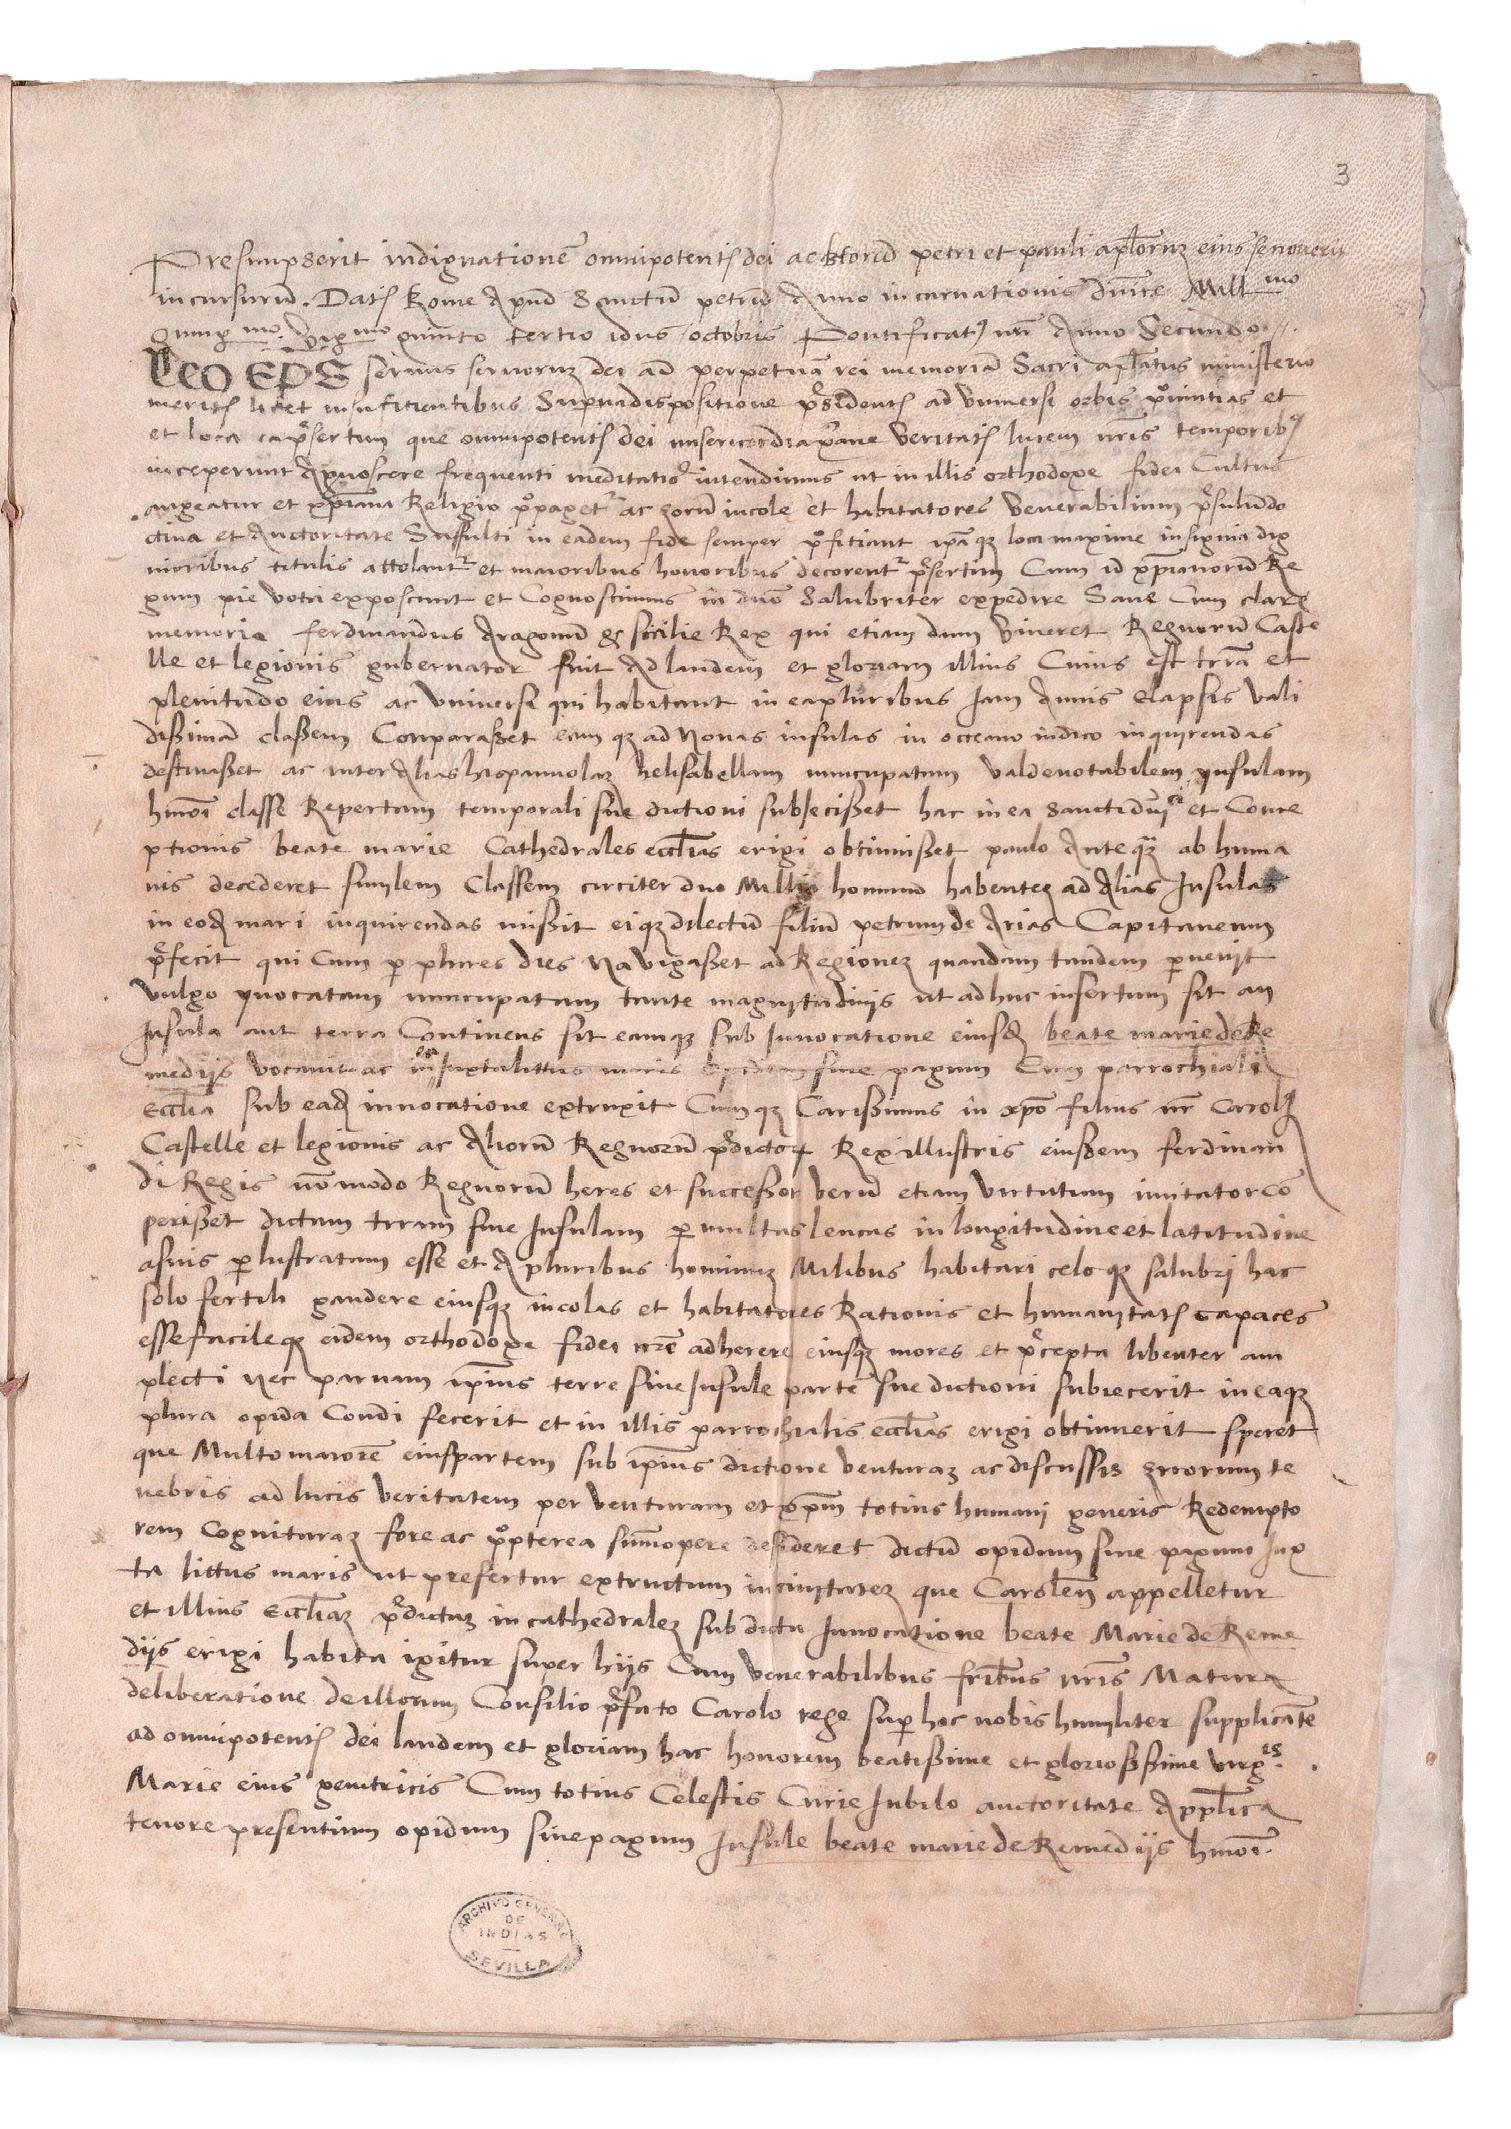 3
Presumpserit indignationē omnipotentis dei ac btorū petri et pauli aplorum eius se noverit
incursurū. Datis Rome Apud Sanctū petrū Anno incarnationis dnīce Mill^mo
Quing^mo Vig^mo quinto tertio idus octobris Pontificatꝰ nrī Anno Secundo.
Leo EPS servus servorum dei ad perpetuā rei memoriā Sacri aplatus ministerio
meritis licet insufitientibus Supna dispositione presidentis ad Universi orbis provintias et
et loca ca presertim que omnipotentis dei misericordia xrane Veritatis lucem nrīs temporibꝰ
inceperunt Agnoscere frequenti meditatiōe intendimus ut in illis orthodoxe fidei Cultus
augeatur et xpiana Religio propagetr ac eorū incole et habitatores Venerabilium presulum do
ctrina et Auctoritate Suffulti in eadem fide semper profitiant ipāqz loca maxime insignia dig
nioribus titulis attolantr et maioribus honoribus decorentr presertim Cum id xpianorū Re
gum pie vota exposcunt et Cognoscimus in dnō Salubriter expedire Sane Cum clare
memorie ferdinandus Aragonū &c sicilie Rex qui etiam dum Viveret Regnorū Caste
lle et legionis gubernator fuit Ad laudem et gloriam illius Cuius est trrā et
plenitudo eius ac Universi qui habitant in ea pluribus Iam Annis Elapsis Vali
dissimā classem Conparasset eamqz ad Novas insulas in occeano indico inquirendas
destinasset ac inter Alias hispannolaz helisabellam nuncupatum Valde notabilem ynsulam
hmōi classe Repertam temporali sue dictioni subjecisset hac in ea sancti dnīci et Conce
ptionis beate marie Cathedrales ecclīas erigi obtinuisset paulo Anteqz ab huma
nis decederet similem Classem circiter duo Millia hominū habentez ad Alias Insulas
in eodē mari inquirendas missit eiqz dilectū filiū petrum de Arias Capitaneum
prefecit qui Cum per plures dies Navigasset ad Regionez quandam tandem pervenit
Vulgo yuocatam nuncupatam tante magnitudinis ut adhuc insertum sit an
Insula aut terra Continens sit eamqz sub Invocatione eiusdē beate marie de Re
mediis vocavit ac in ea Iuxta littus maris opidum sive pagum Cum parrochiali
Ecclīa sub eadē innocatione extruxit Cumqz Carissimus in xpō filius nr̄ Carolꝰ
Castelle et legionis ac Aliorū Regnorū predictor Rex illustris eiusdem ferdinan
di Regis non modo Regnorū heres et successor verū etiam virtutum imitator co
perisset dictam trram sive Insulam per multas leucas in longitudine et latitudine
a suis perlustratum esse et A pluribus hominum Milibus habitari celoqz salubri hac
solo fertili gaudere eiusqz incolas et habitatores Rationis et humanitatis capaces
esse facileqz eidem orthodoxe fidei nrē adherere eiusqz mores et precepta libenter am
plecti nec parvam ipius terre sive Insule partē sue dictioni subiecerit in eaqz
plura opida Condi fecerit et in illis parrochialis ecclīas erigi obtinuerit speret
que Multo maiorē eius partem sub ipius dictione venturaz ac discussis errorum te
nebris ad lucis veritatem per venturam et xpm totius humani generis Redempto
rem Cognituraz fore ac propterea summopere desideret dictū opidum sive pagum Iux
ta littus maris ut prefertur extructum in civitatez que Carolen appelletur
et illius Ecclīaz predictaz in cathedralez sub dicta Innocatione beate Marie de Reme
diis erigi habita igitur super hiis Cum venerabilibus fribus nrīs Matura
deliberatione de illorum Consilio prefato Carolo rege super hoc nobis humiliter supplicāte
ad omnipotentis dei laudem et gloriam hac honorem beatissime et gloriosissime virg^is.
Marie eius genitricis Cum totius Celestis Curie Iubilo auctoritate Applica
tenore presentium opidum sive pagum Insule beate marie de Remediis hmōi.
ARCHIVO GENERAL
DE
INDIAS
SEVILLA